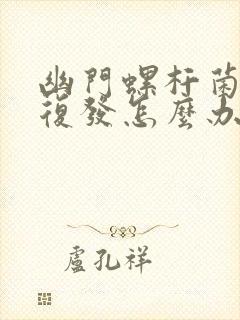 幽門螺杆菌
復發怎麼办
盧孔祥